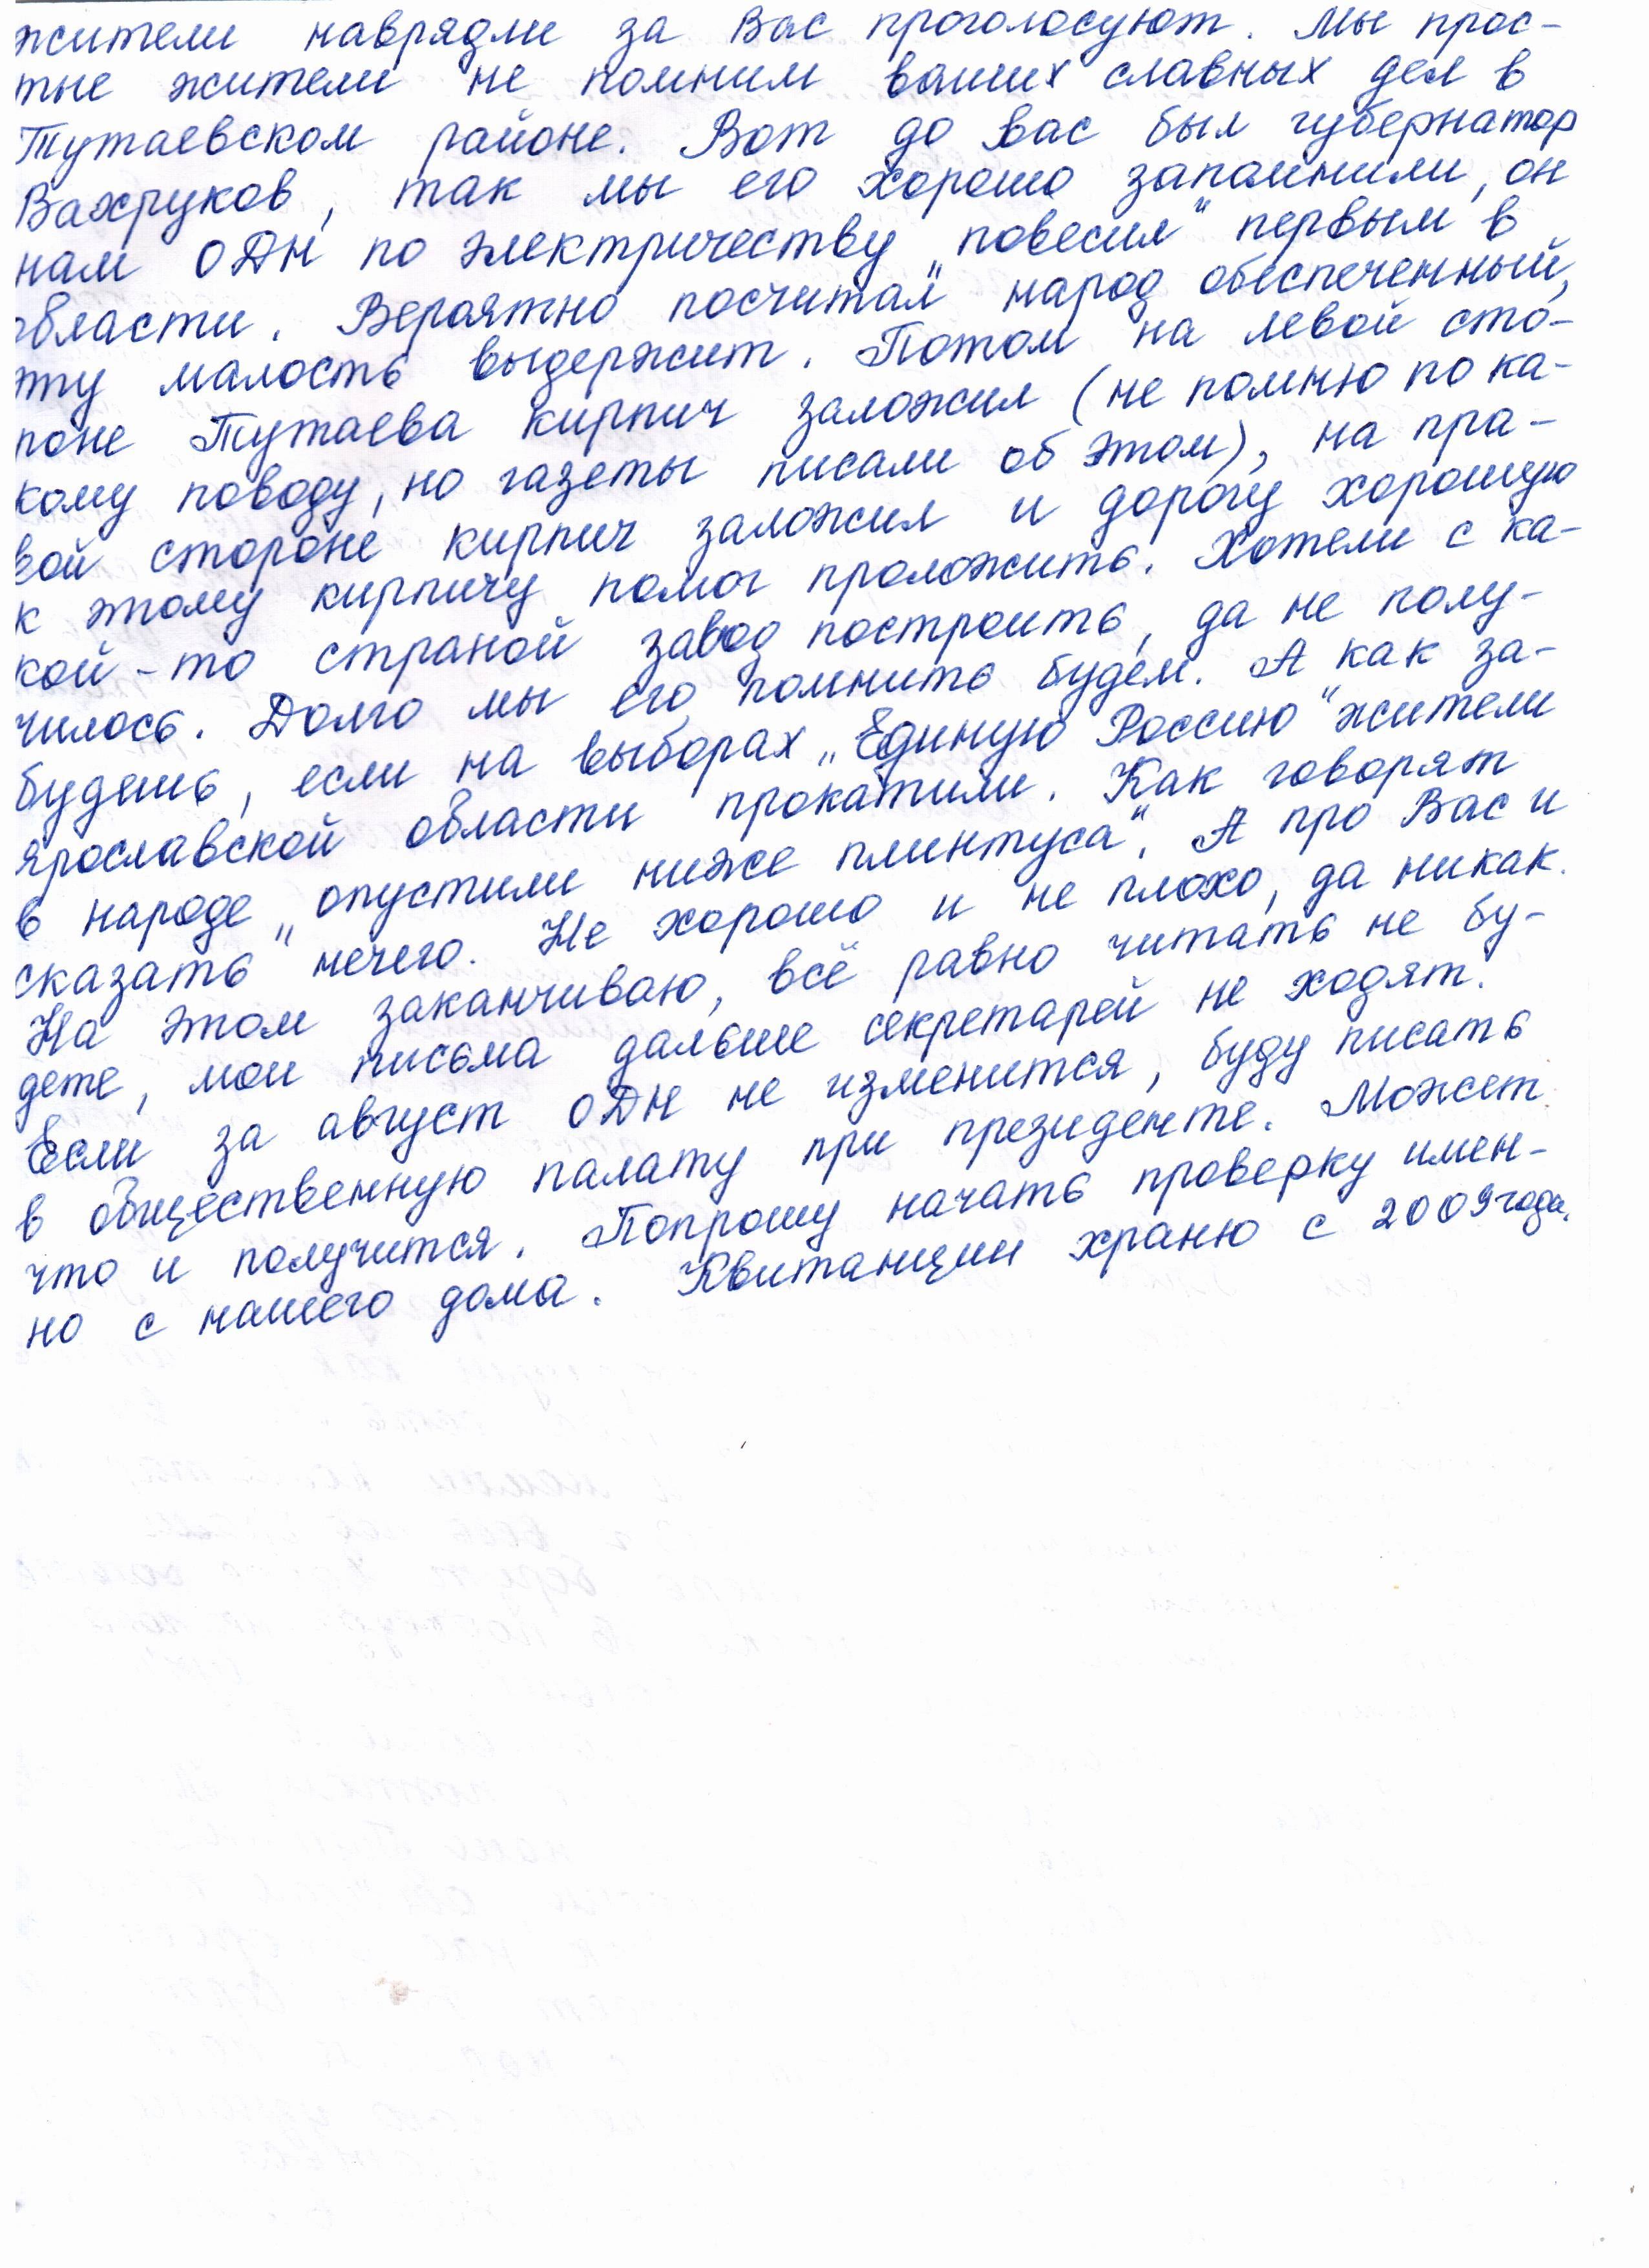 жители наврядли за Вас проголосуют. Мы прос-
тые жители не помним ваших славных дел в
Тутаевском районе. Вот до вас был губернатор
Вахруков, так мы его хорошо запомнили, он
нам ОДН по электричеству „повесил" первым в
области. Вероятно посчитал „народ обеспеченный,
эту малость выдержит. Потом на левой сто-
роне Тутаева кирпич заложил (не помню по ка-
кому поводу, но газеты писали об этом), на пра-
вой стороне кирпич заложил и дорогу хорошую
к этому кирпичу помог проложить. Хотели с ка-
кой-то страной завод построить, да не полу-
чилось. Долго мы его помнить будем. А как за-
будешь, если на выборах „Единую Россию" жители
Ярославской области прокатили. Как говорят
в народе „опустили ниже плинтуса". А про Вас и
сказать нечего. Не хорошо и не плохо, да никак.
На этом заканчиваю, всё равно читать не бу-
дете, мои письма дальше секретарей не ходят.
Если за август ОДН не изменится, буду писать
в общественную палату при президенте. Может
что и получится. Попрошу начать проверку имен-
но с нашего дома. Квитанции храню с 2009 года.